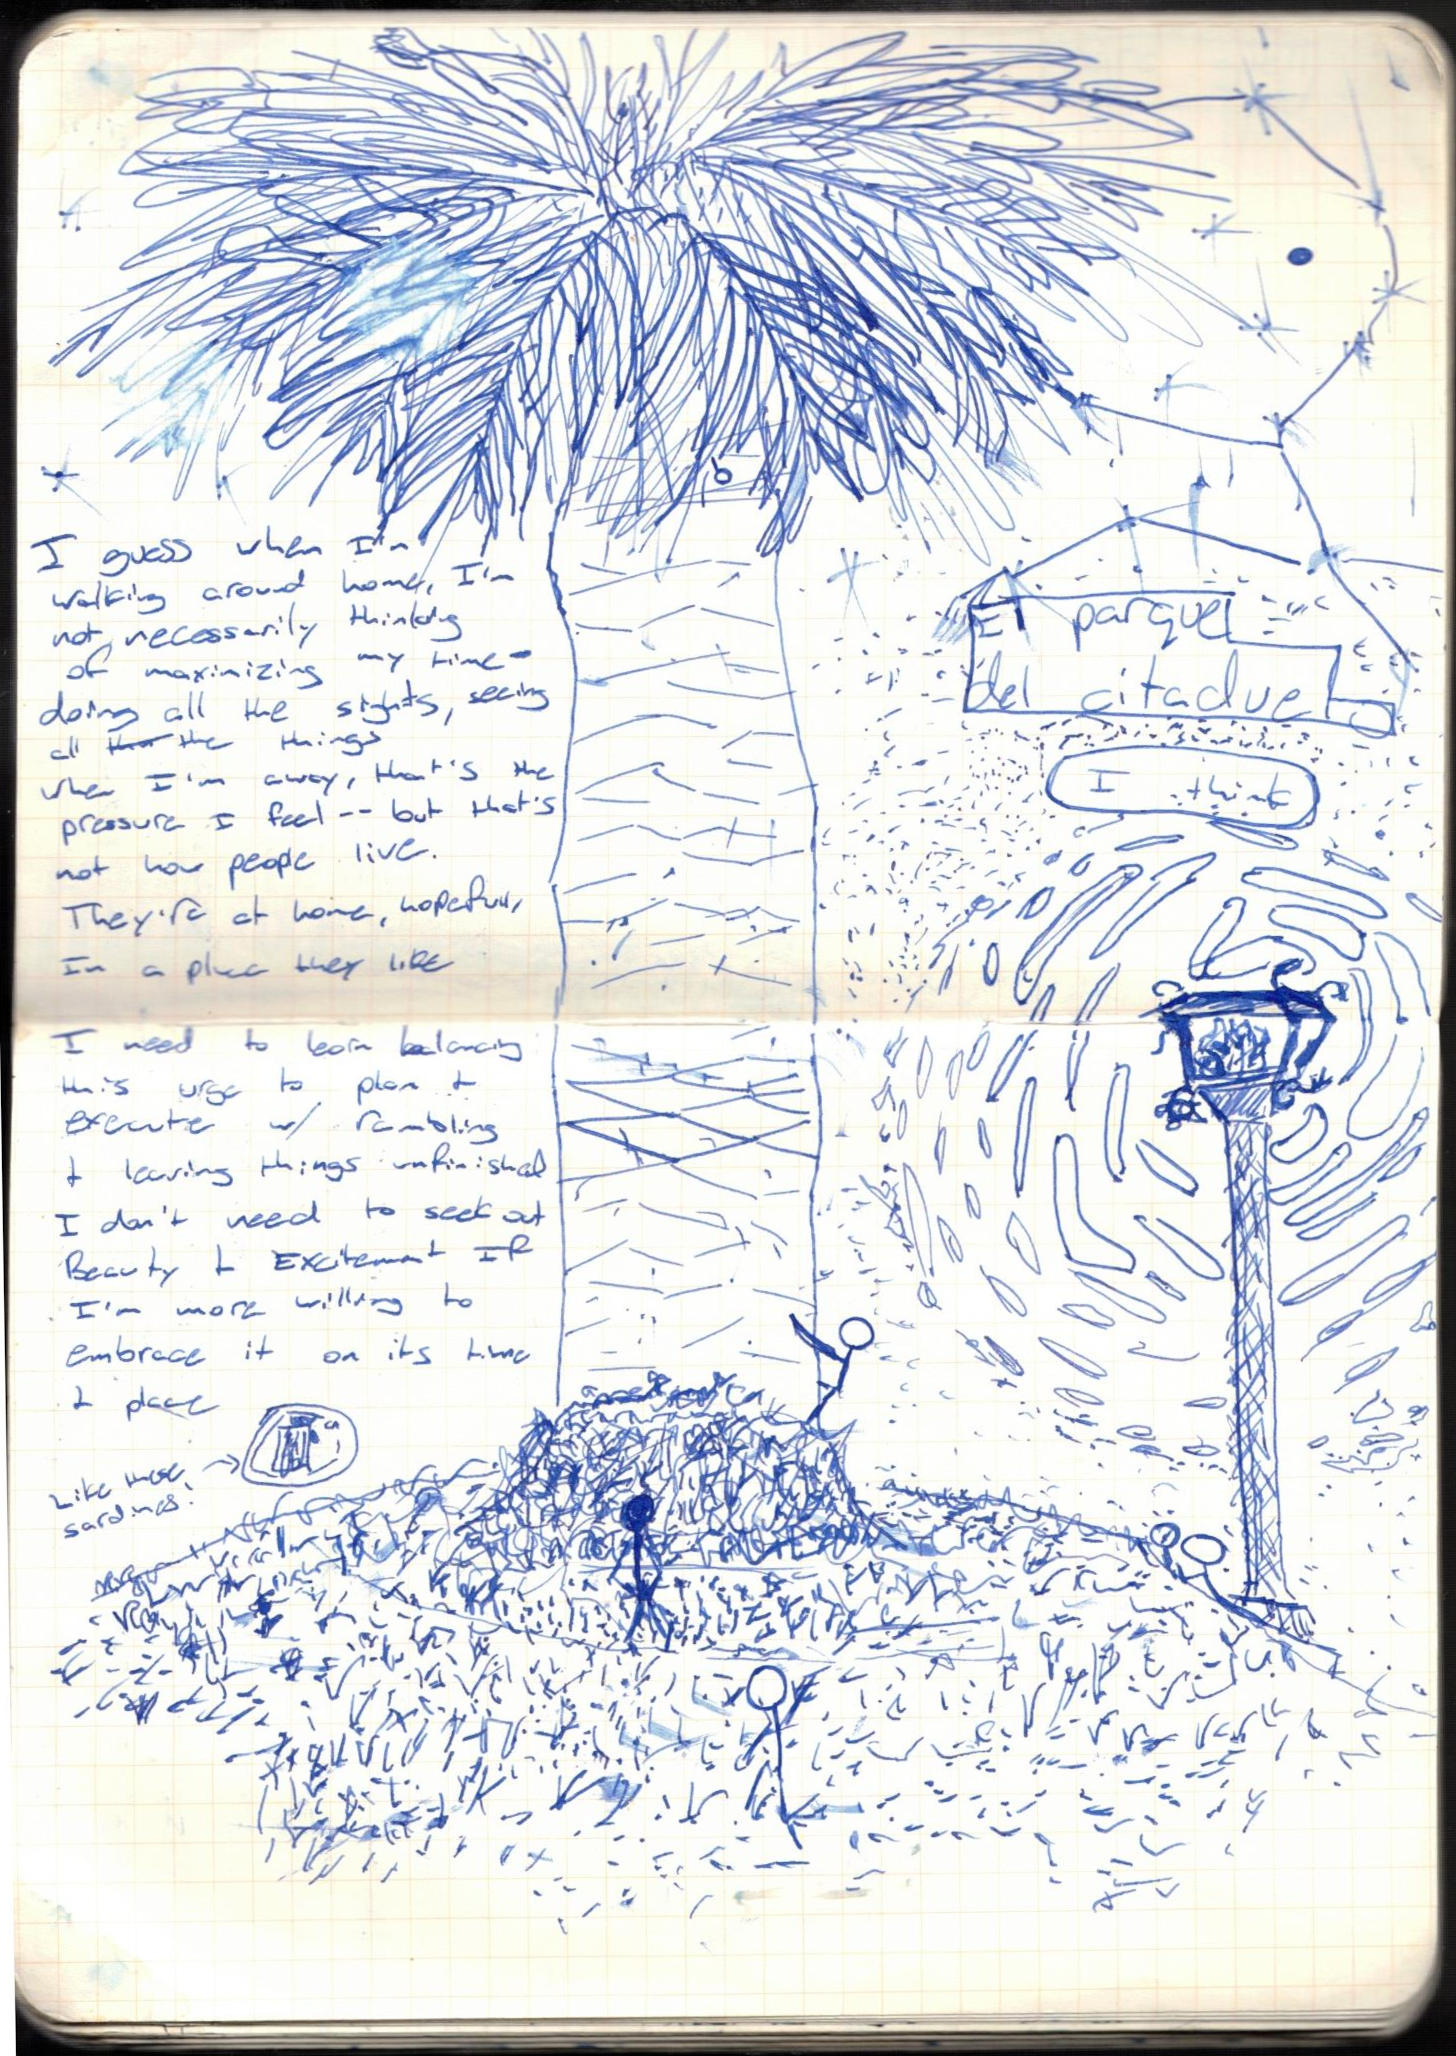 I guess when I'm
walking around home, I'm
not necessarily thinking
of maximizing my time -
doing all the sights, seeing
all the things
when I'm away, that's the
pressure I feel -- but that's
not how people live.
They're at home, hopefully,
In a place they like
I need to learn balancing
this urge to plan +
execute w/ rambling
+ leaving things unfinished
I don't need to seek out
Beauty + Excitement If
I'm more willing to
embrace it on its time
+ place
Like these
sardines!
El parque
del citadue
I think